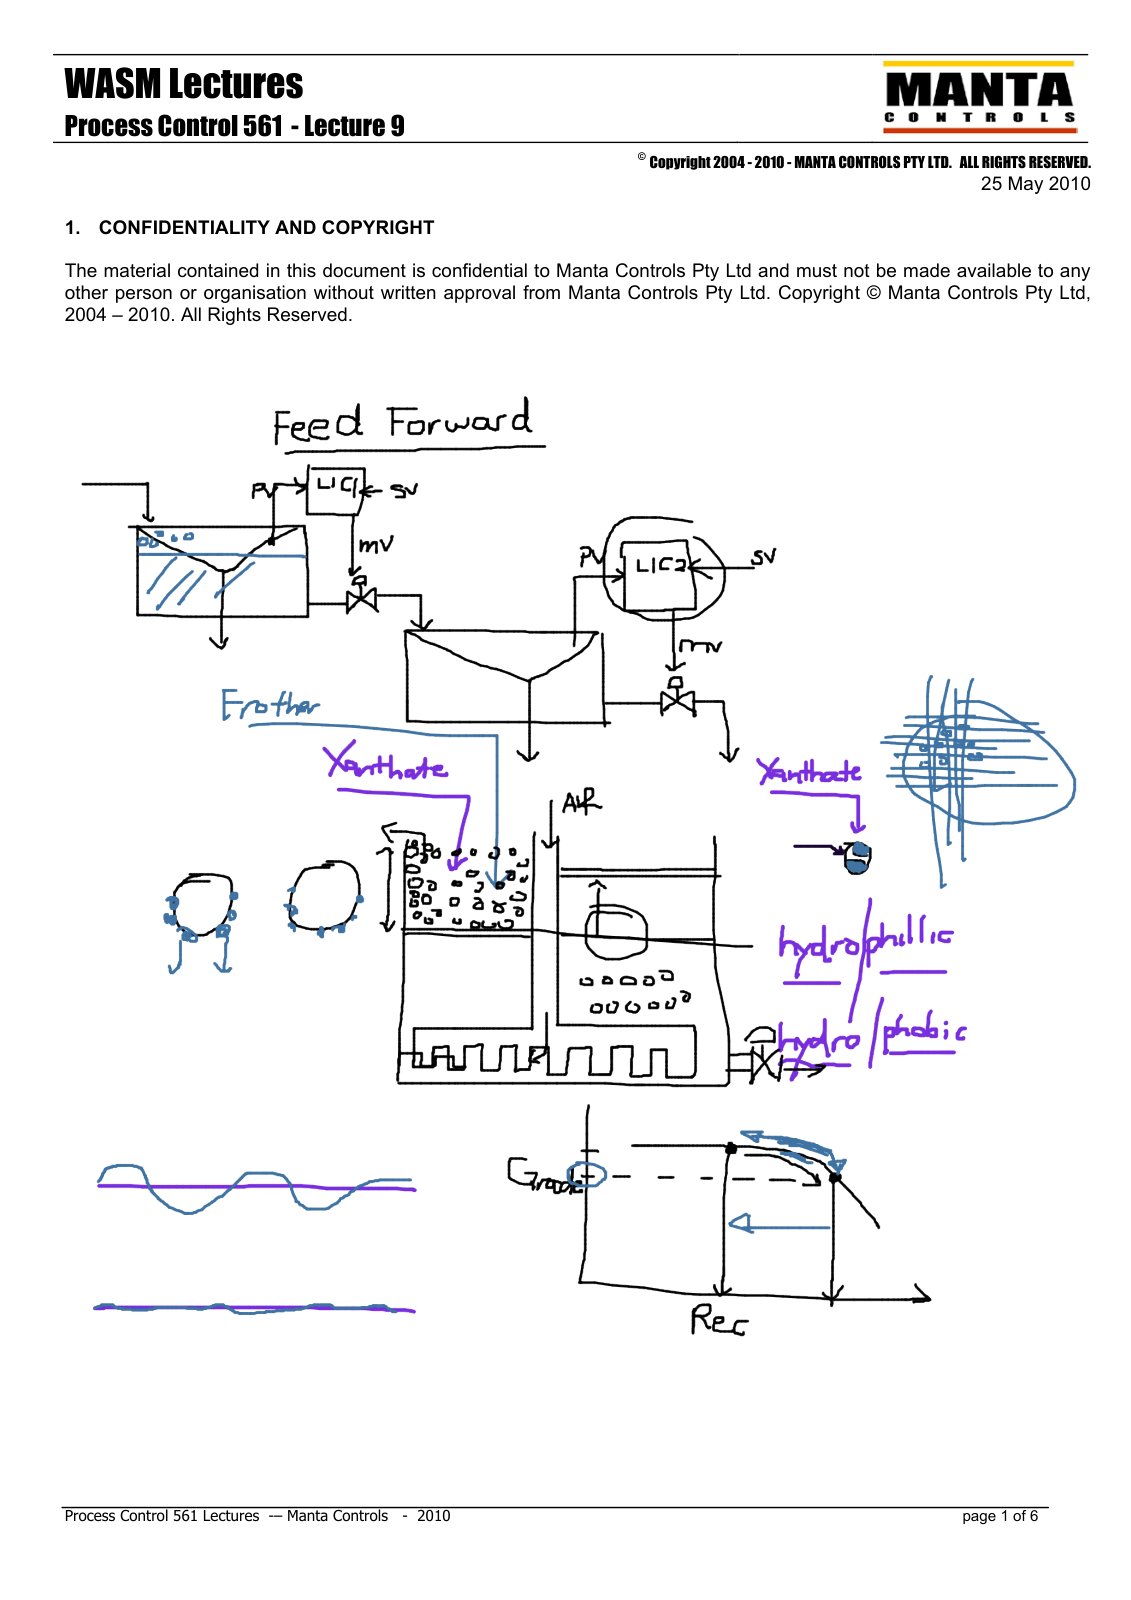 WASM Lectures
Process Control 561 - Lecture 9
MANTA
CONTROLS
© Copyright 2004 - 2010 - MANTA CONTROLS PTY LTD. ALL RIGHTS RESERVED.
25 May 2010
1. CONFIDENTIALITY AND COPYRIGHT
The material contained in this document is confidential to Manta Controls Pty Ltd and must not be made available to any
other person or organisation without written approval from Manta Controls Pty Ltd. Copyright © Manta Controls Pty Ltd,
2004 – 2010. All Rights Reserved.
Feed Forward
PV LIC1 SV
mV
PV LIC2 SV
mv
Frother
Xanthate
Xanthate
AIR
hydro/phillic
hydro/phobic
Grade
Rec
Process Control 561 Lectures -– Manta Controls - 2010
page 1 of 6